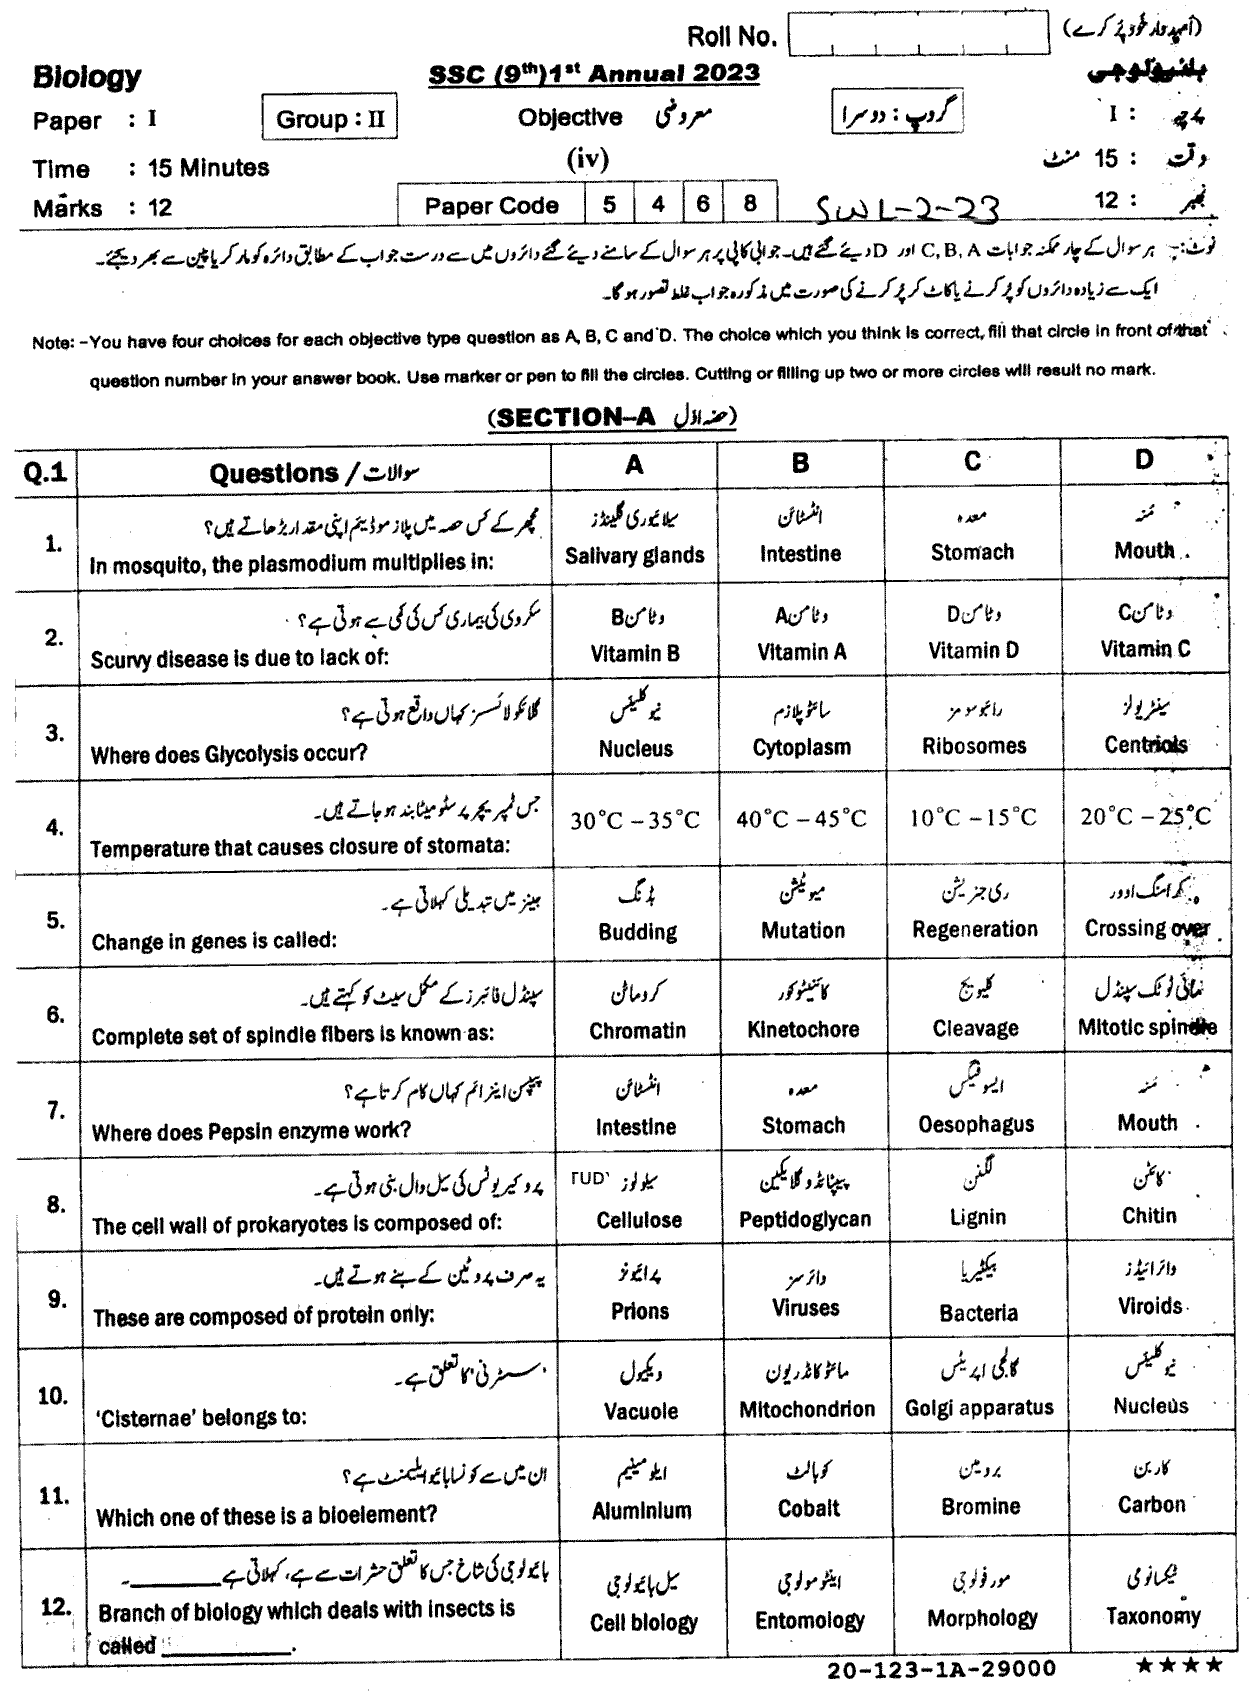 Roll No. (امیدوار خود پُر کرے)
Biology SSC (9th)1st Annual 2023 بائیولوجی
Paper : I Group : II Objective معروضی گروپ : دوسرا پرچہ : I
Time : 15 Minutes (iv) وقت : 15 منٹ
Marks : 12 Paper Code 5 4 6 8 SWL-2-23 نمبر : 12
نوٹ:- ہر سوال کے چار ممکنہ جوابات C, B, A اور D دیئے گئے ہیں۔ جوابی کاپی پر ہر سوال کے سامنے دیئے گئے دائروں میں سے درست جواب کے مطابق دائرہ کو مارکر یا پین سے بھر دیجئے۔
ایک سے زیادہ دائروں کو پُر کرنے یا کاٹ کر پُر کرنے کی صورت میں مذکورہ جواب غلط تصور ہو گا۔
Note: -You have four choices for each objective type question as A, B, C and D. The choice which you think is correct, fill that circle in front of that
question number in your answer book. Use marker or pen to fill the circles. Cutting or filling up two or more circles will result no mark.
(SECTION-A حصہ اوّل)
Q.1 Questions / سوالات A B C D
1. مچھر کے کس حصہ میں پلازموڈیم اپنی مقدار بڑھاتے ہیں؟ سیلائیوری گلینڈز انٹسٹائن معدہ منہ
In mosquito, the plasmodium multiplies in: Salivary glands Intestine Stomach Mouth
2. سکروی کی بیماری کس کی کمی سے ہوتی ہے؟ وٹامن B وٹامن A وٹامن D وٹامن C
Scurvy disease is due to lack of: Vitamin B Vitamin A Vitamin D Vitamin C
3. گلائکولائسز کہاں واقع ہوتی ہے؟ نیوکلیئس سائٹوپلازم رائبوسومز سینٹریولز
Where does Glycolysis occur? Nucleus Cytoplasm Ribosomes Centriols
4. جس ٹمپریچر پر سٹومیٹا بند ہو جاتے ہیں۔ 30°C – 35°C 40°C – 45°C 10°C – 15°C 20°C – 25°C
Temperature that causes closure of stomata:
5. جینز میں تبدیلی کہلاتی ہے۔ بڈنگ میوٹیشن ری جنریشن کراسنگ اوور
Change in genes is called: Budding Mutation Regeneration Crossing over
6. سپنڈل فائبرز کے مکمل سیٹ کو کہتے ہیں۔ کروماٹن کائنیٹوکور کلیویج مائی ٹوٹک سپنڈل
Complete set of spindle fibers is known as: Chromatin Kinetochore Cleavage Mitotic spindle
7. پیپسن اینزائم کہاں کام کرتا ہے؟ انٹسٹائن معدہ ایسوفیگس منہ
Where does Pepsin enzyme work? Intestine Stomach Oesophagus Mouth
8. پروکیریوٹس کی سیل وال بنی ہوتی ہے۔ سیلولوز پیپٹائڈوگلائیکین لگنن کائٹن
The cell wall of prokaryotes is composed of: Cellulose Peptidoglycan Lignin Chitin
9. یہ صرف پروٹین کے بنے ہوتے ہیں۔ پرائیونز وائرسز بیکٹیریا وائرائیڈز
These are composed of protein only: Prions Viruses Bacteria Viroids
10. 'سسٹرنی' کا تعلق ہے۔ ویکیول مائٹوکانڈریون گالجی اپریٹس نیوکلیئس
'Cisternae' belongs to: Vacuole Mitochondrion Golgi apparatus Nucleus
11. ان میں سے کونسا بائیو ایلیمنٹ ہے؟ ایلومینیم کوبالٹ برومین کاربن
Which one of these is a bioelement? Aluminium Cobalt Bromine Carbon
12. بائیولوجی کی شاخ جس کا تعلق حشرات سے ہے، کہلاتی ہے ________۔ سیل بائیولوجی اینٹومولوجی مورفولوجی ٹیکسانومی
Branch of biology which deals with insects is Cell biology Entomology Morphology Taxonomy
called ____________.
20-123-1A-29000 ★★★★